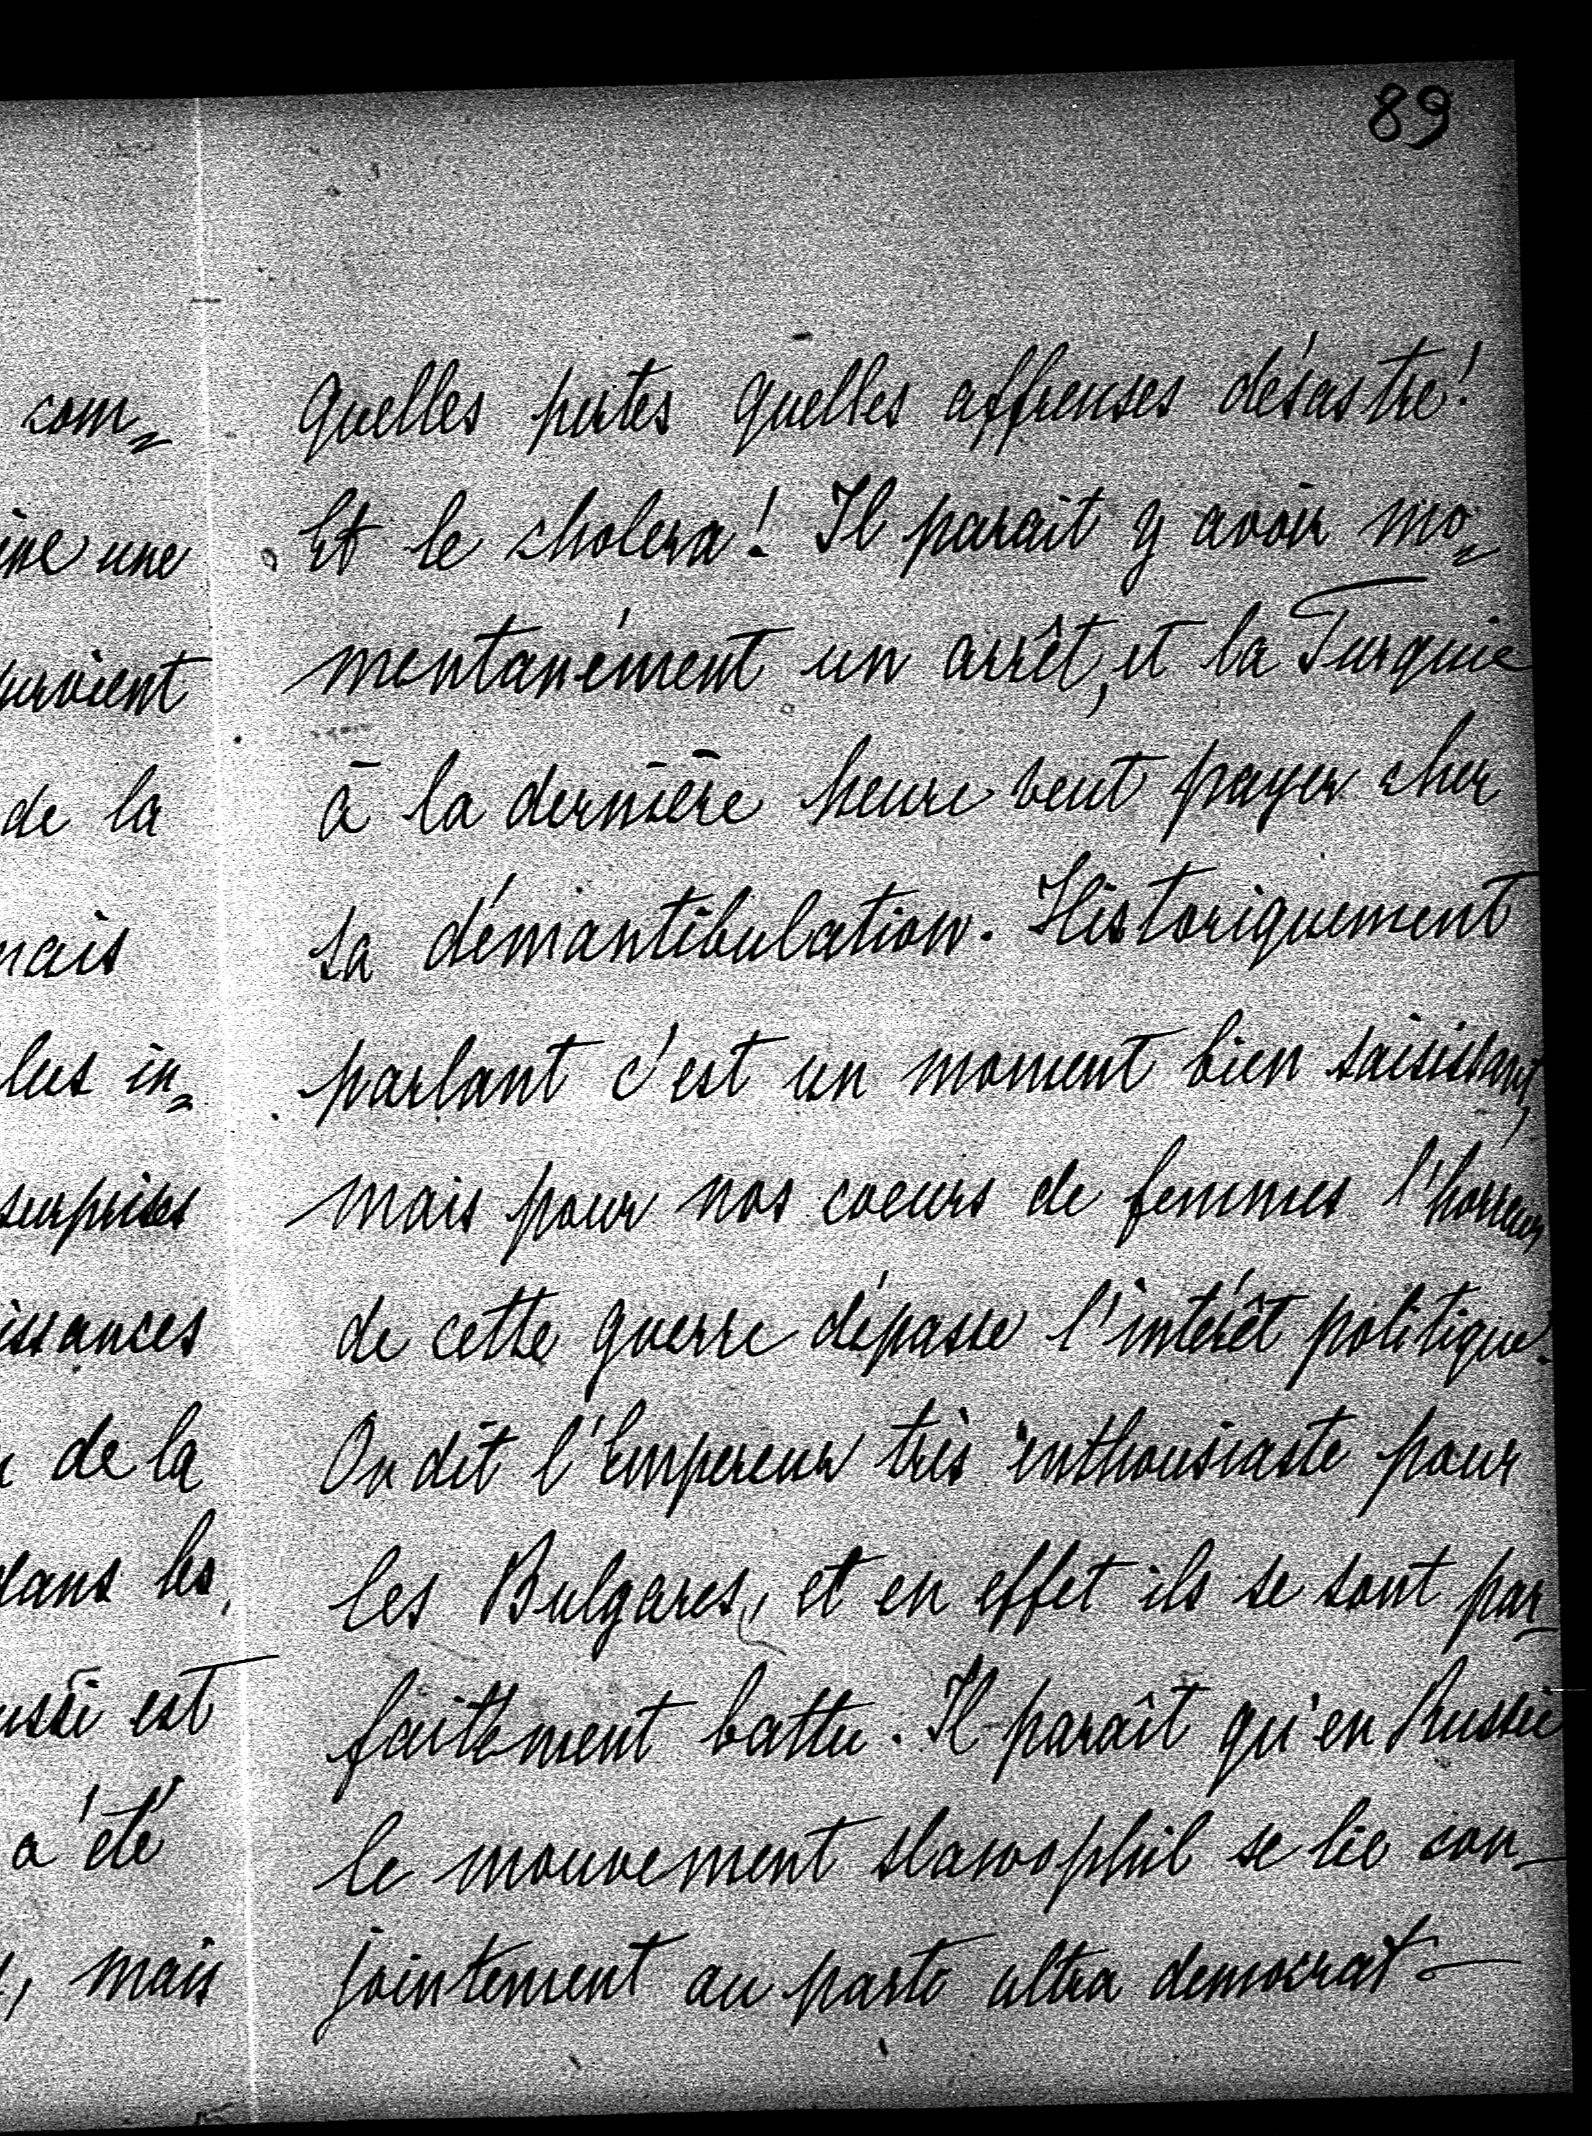 89
com=
ine une
urvient
de la
mais
lus in=
surprises
issances
de la
dans les,
ussi est
a été
, mais
Quelles pertes quelles affreuses désastre!
Et le cholera! Il parait y avoir mo=
mentanément un arrêt, et la Turquie
à la dernière heure veut payer cher
sa démantibulation. Historiquement
parlant c'est un moment bien saisissant,
mais pour nos coeurs de femmes l'horreur
de cette guerre dépasse l'intérêt politique.
On dit l'Empereur très enthousiaste pour
les Bulgares, et en effet ils se sont par-
faitement battu. Il paraît qu'en Russie
le mouvement slawophil se lie con-
jointement au parti ultra democrat-